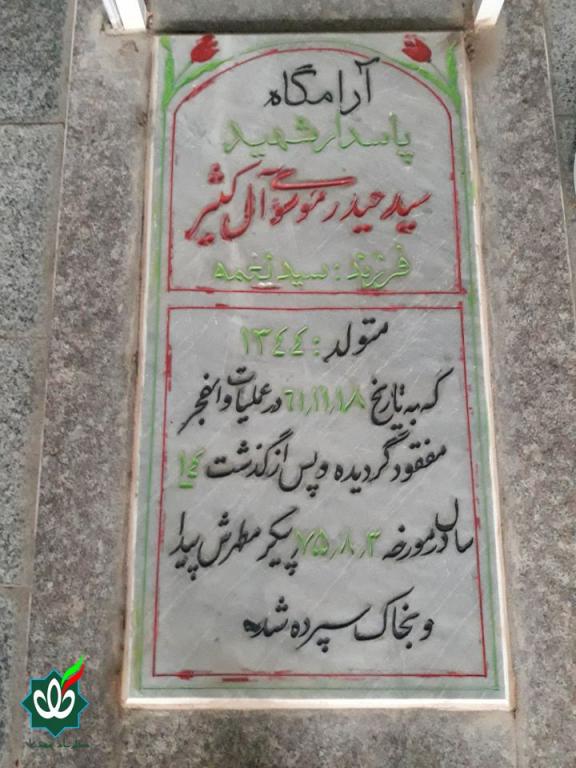 آرامگاه
پاسدار شهید
سید حیدر موسوی آل کثیر
فرزند : سید نعمه
متولد : ۱۳۴۴
که به تاریخ ۶۱٫۱۱٫۱۸ در عملیات والفجر
مفقود گردیده و پس از گذشت ۱۴
سال در مورخه ۷۵٫۸٫۳ پیکر مطهرش پیدا
و بخاک سپرده شده